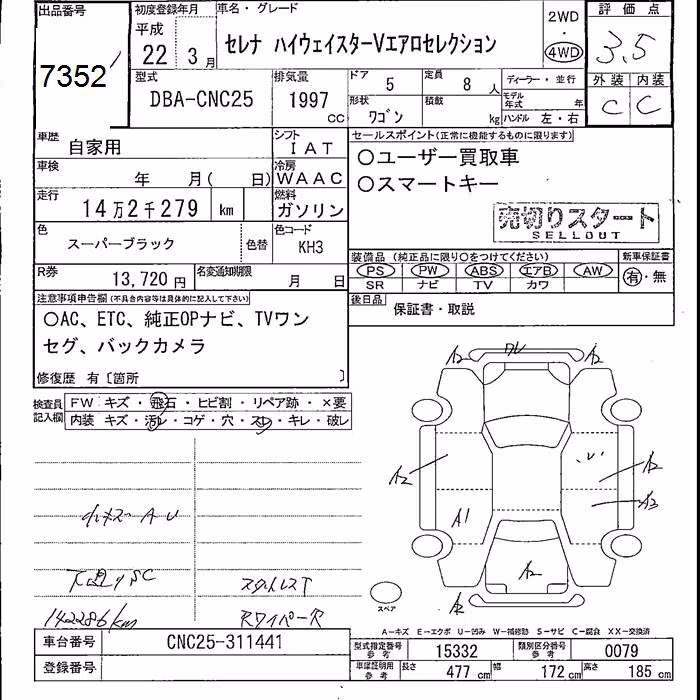 出品番号 初度登録年月 車名・グレード 2WD 評価点
7352 平成 22 3月 セレナ ハイウェイスターVエアロセレクション 4WD 3.5
型式 排気量 ドア 5 定員 8人 ディーラー・並行 外装 内装
DBA-CNC25 1997 CC 形状 ワゴン 積載 kg モデル年式 年 ハンドル 左・右 C C
車歴 自家用 シフト IAT セールスポイント(正常に機能するものに限ります)
車検 年 月( 日) 冷房 WAAC ○ユーザー買取車
走行 14万2千279 km 燃料 ガソリン ○スマートキー
売切りスタート
SELLOUT
色 スーパーブラック 色替 色コード KH3
装備品(純正品に限り○をつけてください) 新車保証書
R券 13,720円 名変通知期限 月 日 PS PW ABS エアB AW 有・無
SR ナビ TV カワ
注意事項申告欄(不具合内容等は具体的に記入して下さい) 後日品 保証書・取説
○AC、ETC、純正OPナビ、TVワン
セグ、バックカメラ
修復歴 有〔箇所 〕
検査員記入欄 FW キズ・飛石・ヒビ割・リペア跡・×要
内装 キズ・汚レ・コゲ・穴・スレ・キレ・破レ
A2 ワレ A2
A2 U A2
A1 A3
小キズ A U
A2
下廻りSC スタットレスT スペア A2
142286km Rワイパーナ
A-キズ E-エクボ U-凹み W-補修跡 S-サビ C-腐食 XX-交換済
車台番号 CNC25-311441 型式指定番号 参考 15332 類別区分番号 参考 0079
登録番号 車庫証明用 参考 長さ 477cm 幅 172cm 高さ 185cm